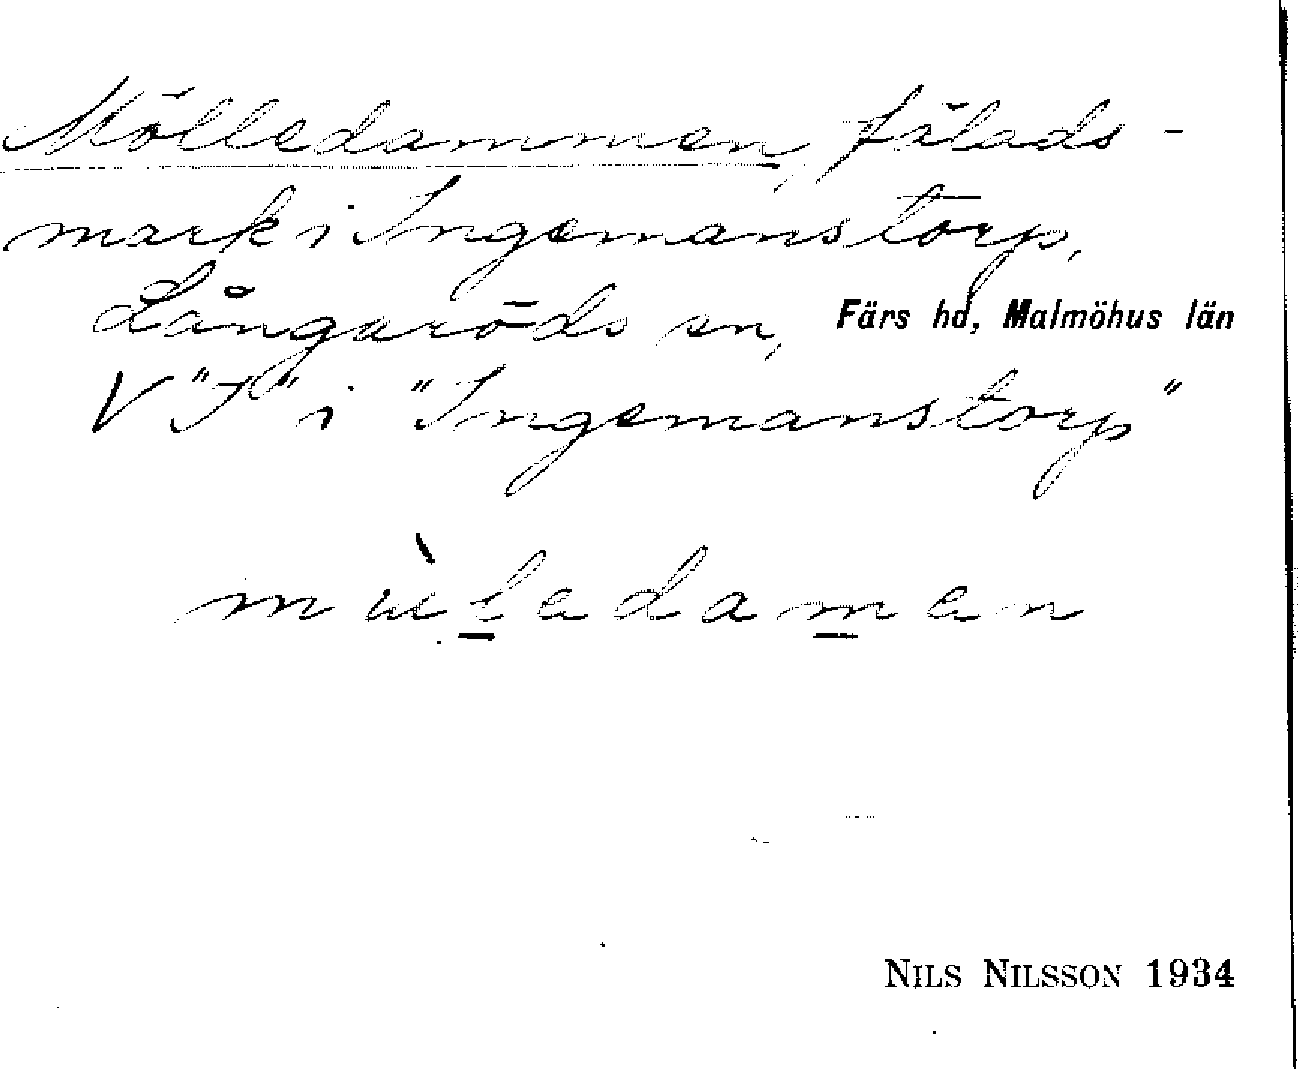 Mölledammen, fälads-
mark i Ingemanstorp,
Långaröds sn, Färs hd, Malmöhus län
V "J" i "Ingemanstorp"
NILS NILSSON 1934